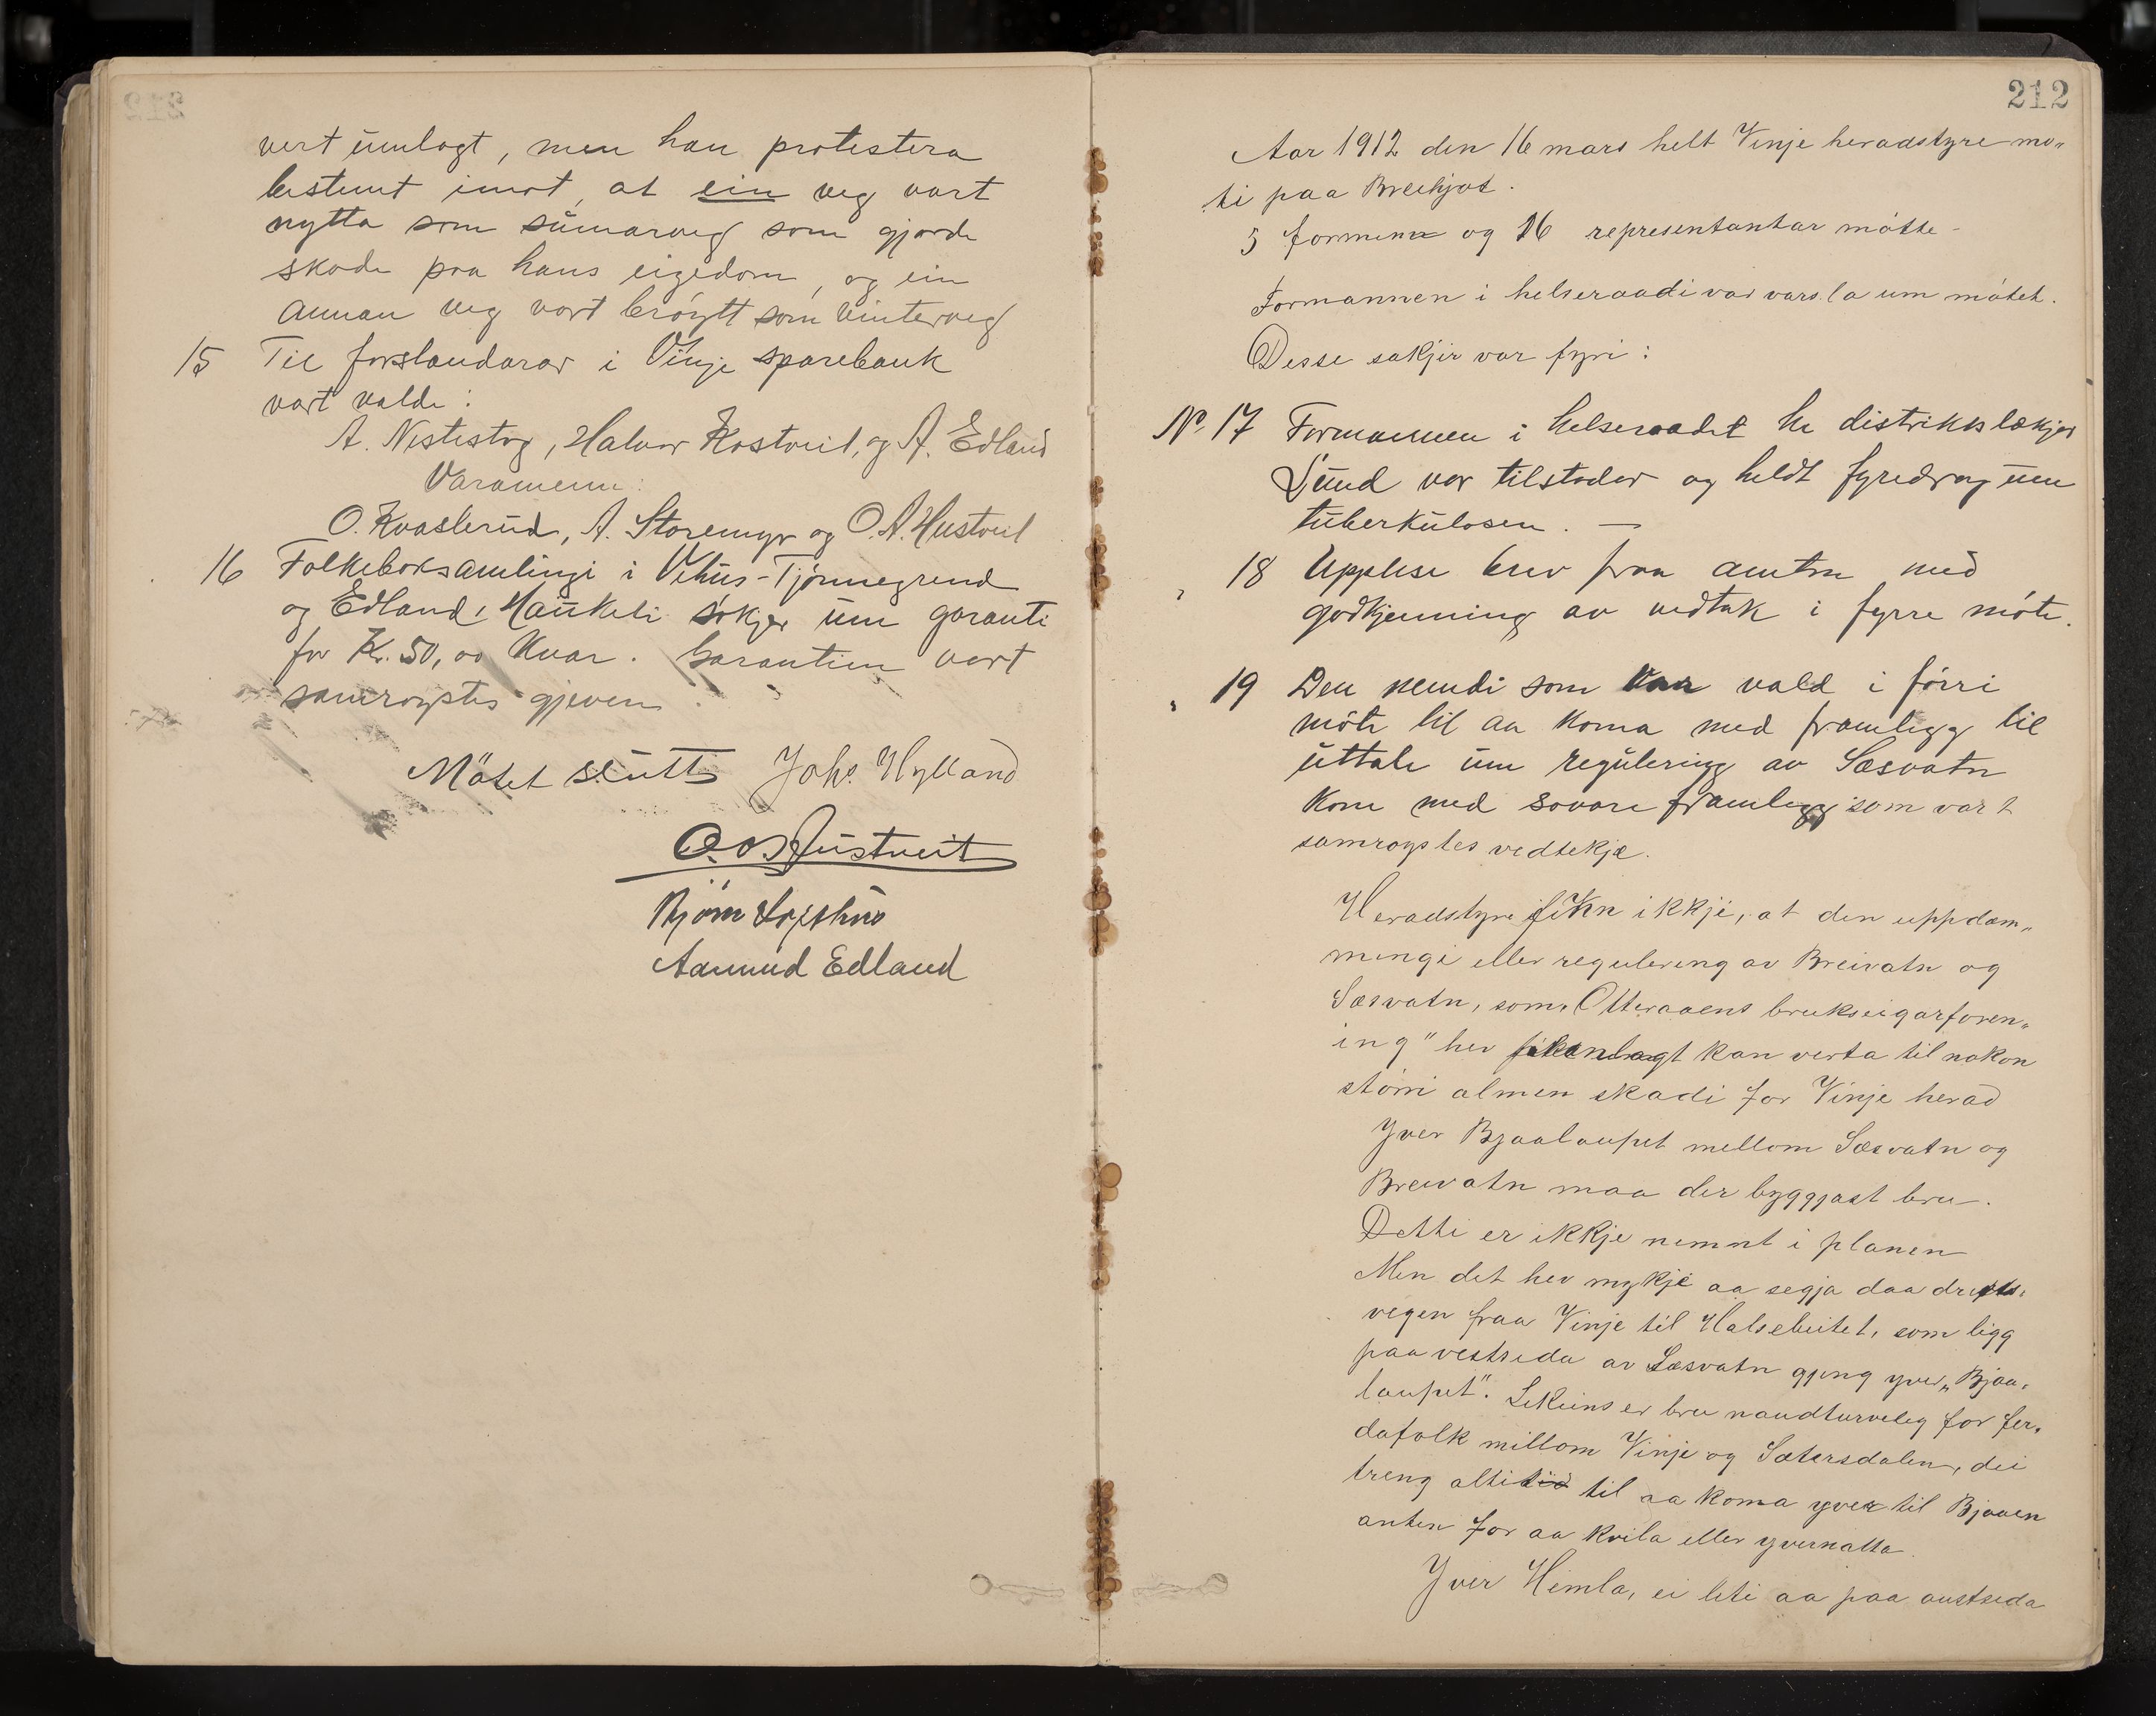 vert umlagt, men han protestera
bestemt imot, at ein veg vart
nytta som sumarveg som gjorde
skade paa hans eigedom, og ein
annan veg vart brøytt som vinterveg
15 Til forstandarar i Vinje sparebank
vart valde:
A. Nestestog, Halvor Kostveit, og A. Edland
Varamenn:
O. Kvaslerud, A. Storemyr og O. A. Hustveit
16 Folkeboksamlingi i Vehus-Tjønnegrend
og Edland, Haukeli søkjer um garanti
for Kr. 50,00 kvar. Garantien vart
samrøystes gjeven
Møtet slutt Johs. Hylland
O. O. Hustveit
Bjørn Lofthus
Aamund Edland
212
Aar 1912 den 16 mars helt Vinje heradstyre mø„
ti paa Breihjot.
5 formenn og 16 representantar møtte
Formannen i helseraadi var varsla um møtet.
Desse sakjir var fyri:
No. 17 Formannen i helseraadet hr distriktslækjar
Lund var tilstadar og heldt fyredrag um
tuberkulosen. —
„ 18 Upplese brev fraa amtm med
godkjenning av vedtak i fyrre møte.
„ 19 Den nemdi som var vald i førri
møte til aa koma med framlegg til
uttale um regulering av Sæsvatn
kom med sovare framlegg som vart
samrøystes vedtekje.
Heradstyre fikn ikkje, at den uppdæm„
mingi eller regulering av Breivatn og
Sæsvatn, som „Otteraaens brukseigarforen„
ing" hev planlagt kan verta til nokon
størri almen skadi for Vinje herad
Yver Bjaalaupet mellom Sæsvatn og
Breivatn maa der byggjast bru.
Detti er ikkje nemnt i planen
Men det hev mykje aa segja daa drifts„
vegen fraa Vinje til Halsebeitet, som ligg
paa vestsida av Sæsvatn gjeng yver „Bjaa„
laupet". Likeins er bru naudturveleg for fer„
dafolk millom Vinje og Sætersdalen, dei
treng altid til aa koma yver til Bjaaen
anten for aa kvila eller yvernatta
Yver Himla, ei liti aa paa austsida